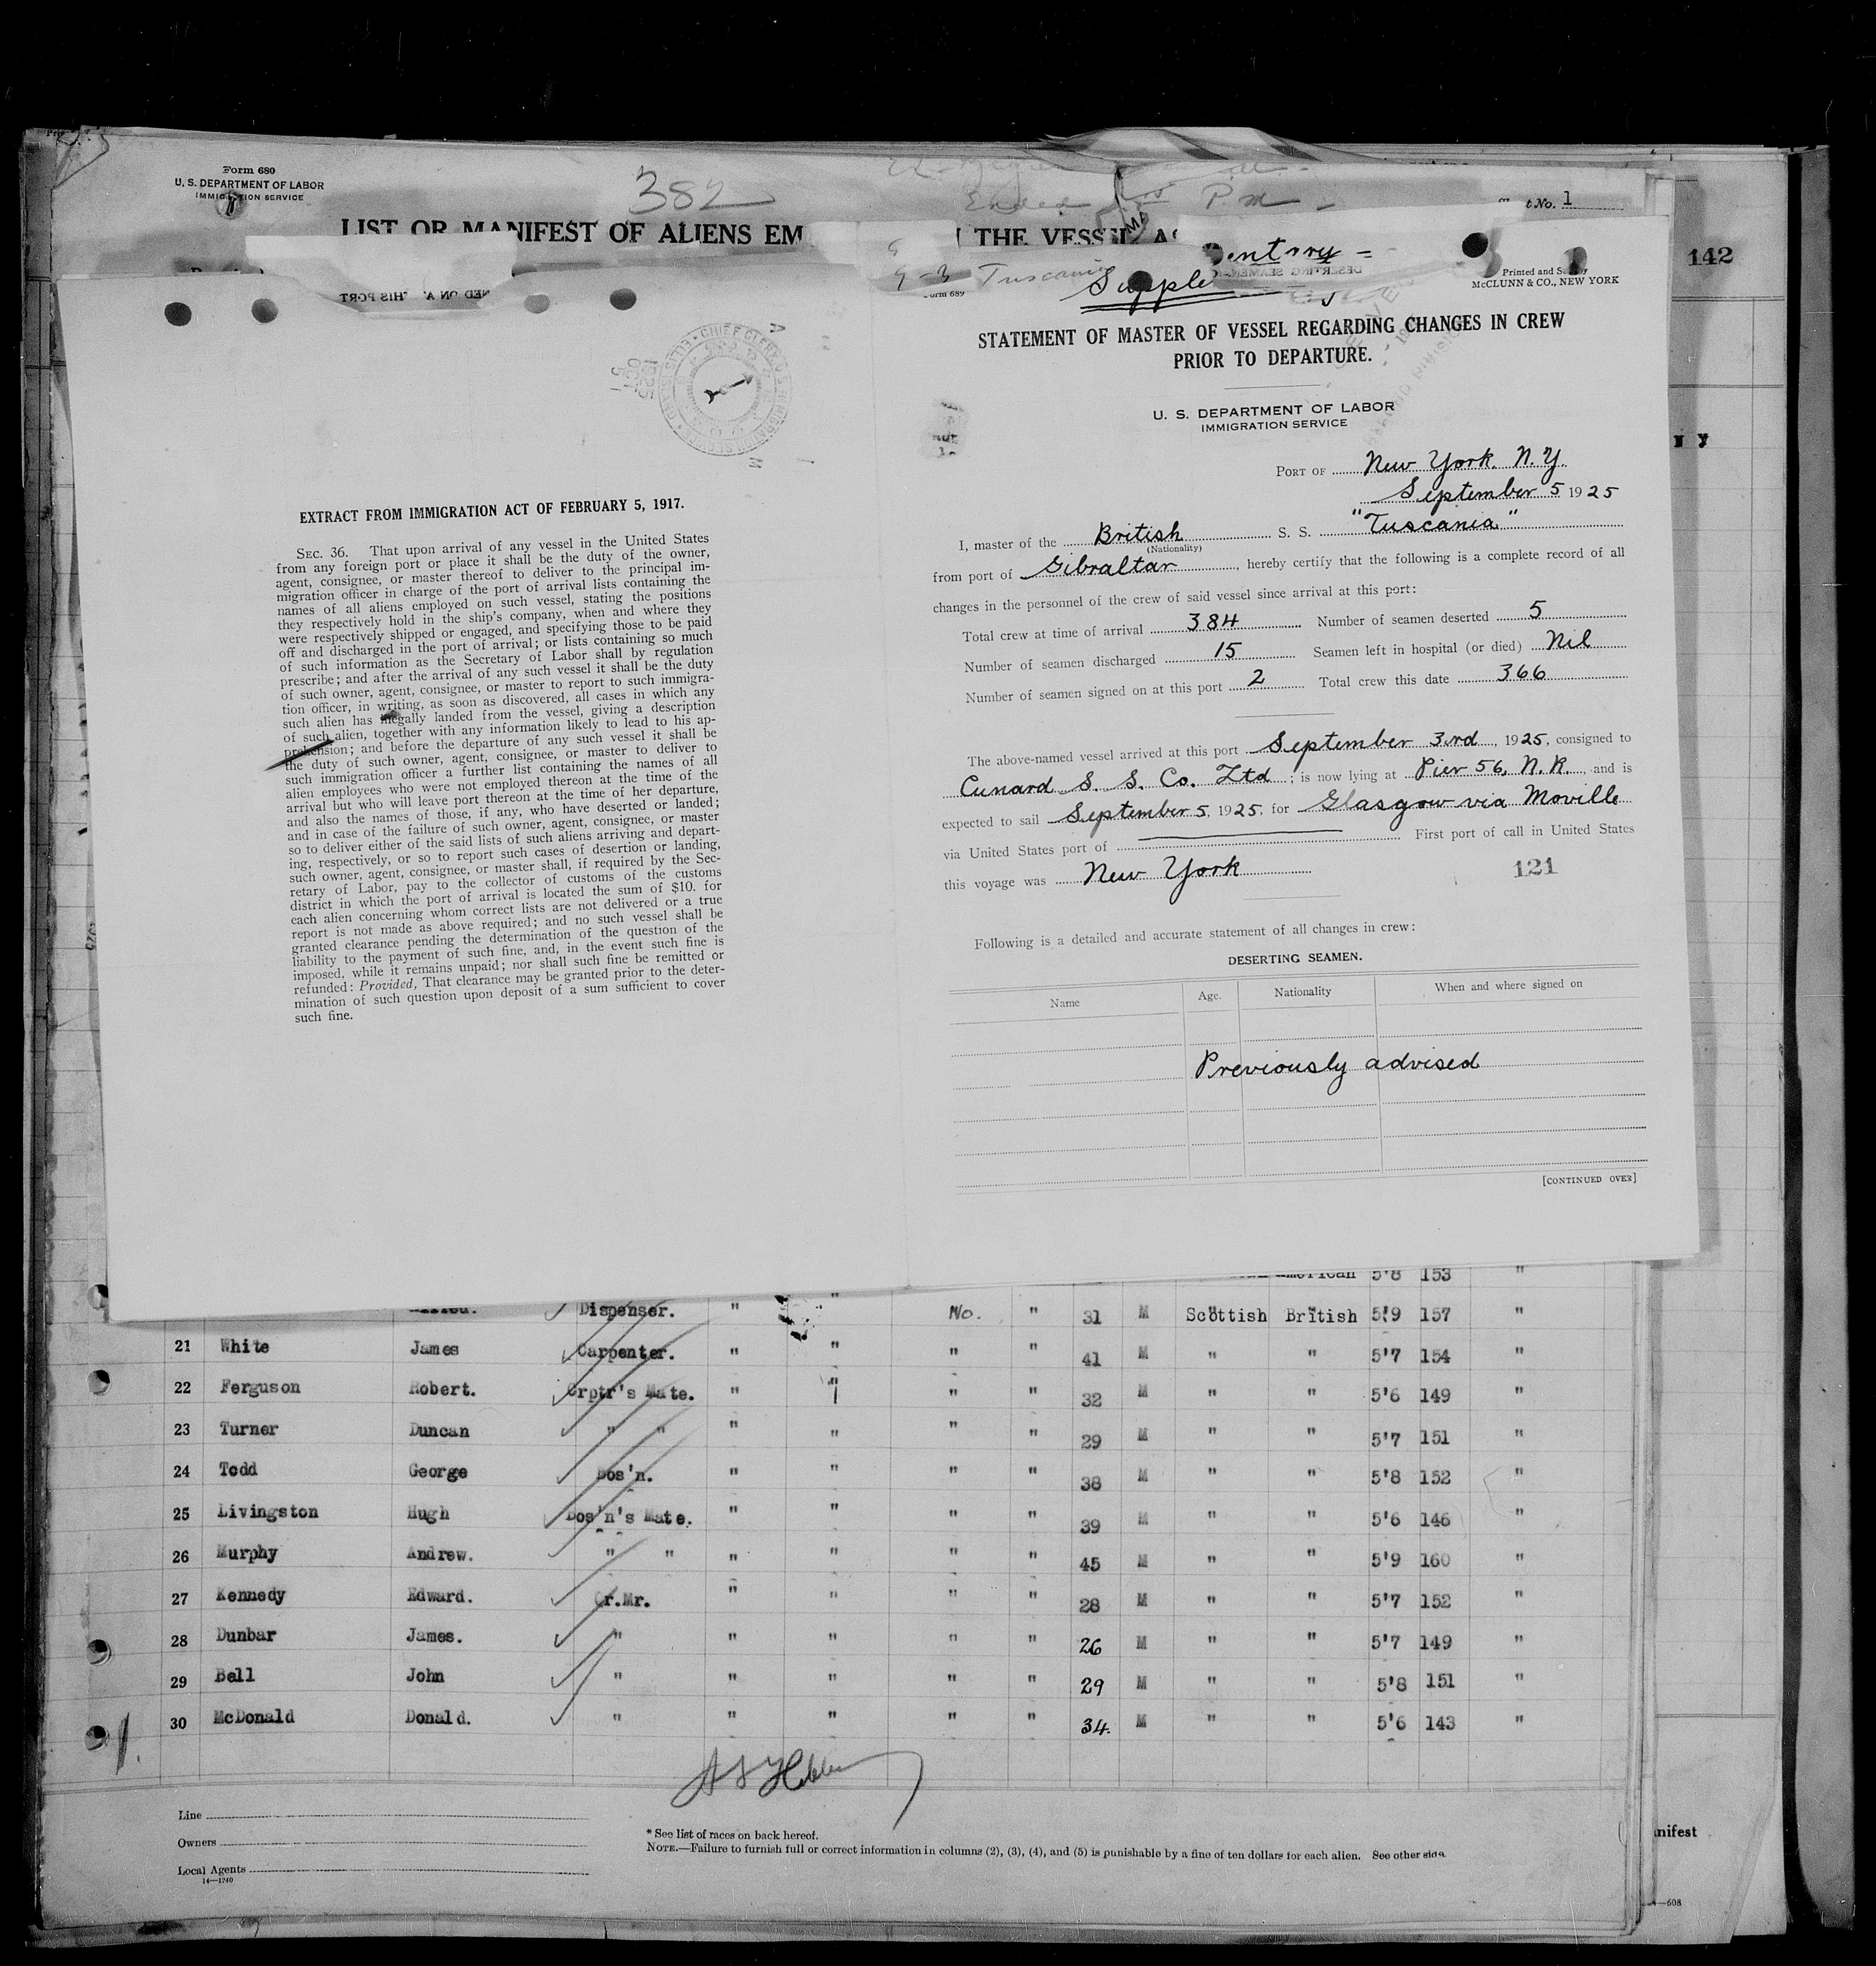 Form 680
U. S. DEPARTMENT OF LABOR
IMMIGRATION SERVICE
382
Ended P.M.
No. 1
LIST OR MANIFEST OF ALIENS EM THE VESSEL AS
142
9-3 Tuscania
Form 689
Printed and Sold by
McCLUNN & CO., NEW YORK
STATEMENT OF MASTER OF VESSEL REGARDING CHANGES IN CREW
PRIOR TO DEPARTURE.
U. S. DEPARTMENT OF LABOR
IMMIGRATION SERVICE
PORT OF New York. N.Y.
September 5 1925
I, master of the British S. S. "Tuscania"
(Nationality)
from port of Gibraltar, hereby certify that the following is a complete record of all
changes in the personnel of the crew of said vessel since arrival at this port:
Total crew at time of arrival 384 Number of seamen deserted 5
Number of seamen discharged 15 Seamen left in hospital (or died) Nil
Number of seamen signed on at this port 2 Total crew this date 366
The above-named vessel arrived at this port September 3rd, 1925, consigned to
Cunard S. S. Co. Ltd; is now lying at Pier 56, N.R., and is
expected to sail September 5, 1925, for Glasgow via Moville
via United States port of First port of call in United States
this voyage was New York
121
Following is a detailed and accurate statement of all changes in crew:
DESERTING SEAMEN.
Name Age. Nationality When and where signed on
Previously advised
[CONTINUED OVER]
EXTRACT FROM IMMIGRATION ACT OF FEBRUARY 5, 1917.
SEC. 36. That upon arrival of any vessel in the United States
from any foreign port or place it shall be the duty of the owner,
agent, consignee, or master thereof to deliver to the principal im-
migration officer in charge of the port of arrival lists containing the
names of all aliens employed on such vessel, stating the positions
they respectively hold in the ship's company, when and where they
were respectively shipped or engaged, and specifying those to be paid
off and discharged in the port of arrival; or lists containing so much
of such information as the Secretary of Labor shall by regulation
prescribe; and after the arrival of any such vessel it shall be the duty
of such owner, agent, consignee, or master to report to such immigra-
tion officer, in writing, as soon as discovered, all cases in which any
such alien has illegally landed from the vessel, giving a description
of such alien, together with any information likely to lead to his ap-
prehension; and before the departure of any such vessel it shall be
the duty of such owner, agent, consignee, or master to deliver to
such immigration officer a further list containing the names of all
alien employees who were not employed thereon at the time of the
arrival but who will leave port thereon at the time of her departure,
and also the names of those, if any, who have deserted or landed;
and in case of the failure of such owner, agent, consignee, or master
so to deliver either of the said lists of such aliens arriving and depart-
ing, respectively, or so to report such cases of desertion or landing,
such owner, agent, consignee, or master shall, if required by the Sec-
retary of Labor, pay to the collector of customs of the customs
district in which the port of arrival is located the sum of $10. for
each alien concerning whom correct lists are not delivered or a true
report is not made as above required; and no such vessel shall be
granted clearance pending the determination of the question of the
liability to the payment of such fine, and, in the event such fine is
imposed, while it remains unpaid; nor shall such fine be remitted or
refunded: Provided, That clearance may be granted prior to the deter-
mination of such question upon deposit of a sum sufficient to cover
such fine.
American 5'8 153 "
Dispenser. " " No. " 31 M Scottish British 5'9 157 "
21 White James Carpenter. " " " " 41 M " " 5'7 154 "
22 Ferguson Robert. Crptr's Mate. " " " " 32 M " " 5'6 149 "
23 Turner Duncan " " " " " " 29 M " " 5'7 151 "
24 Todd George Bos'n. " " " " 38 M " " 5'8 152 "
25 Livingston Hugh Bos'n's Mate. " " " " 39 M " " 5'6 146 "
26 Murphy Andrew. " " " " " " 45 M " " 5'9 160 "
27 Kennedy Edward. Qr.Mr. " " " " 28 M " " 5'7 152 "
28 Dunbar James. " " " " " 26 M " " 5'7 149 "
29 Bell John " " " " " 29 M " " 5'8 151 "
30 McDonald Donald. " " " " " 34. M " " 5'6 143 "
Line
Owners
Local Agents
14—1740
* See list of races on back hereof.
NOTE.—Failure to furnish full or correct information in columns (2), (3), (4), and (5) is punishable by a fine of ten dollars for each alien. See other side.
nifest
—608